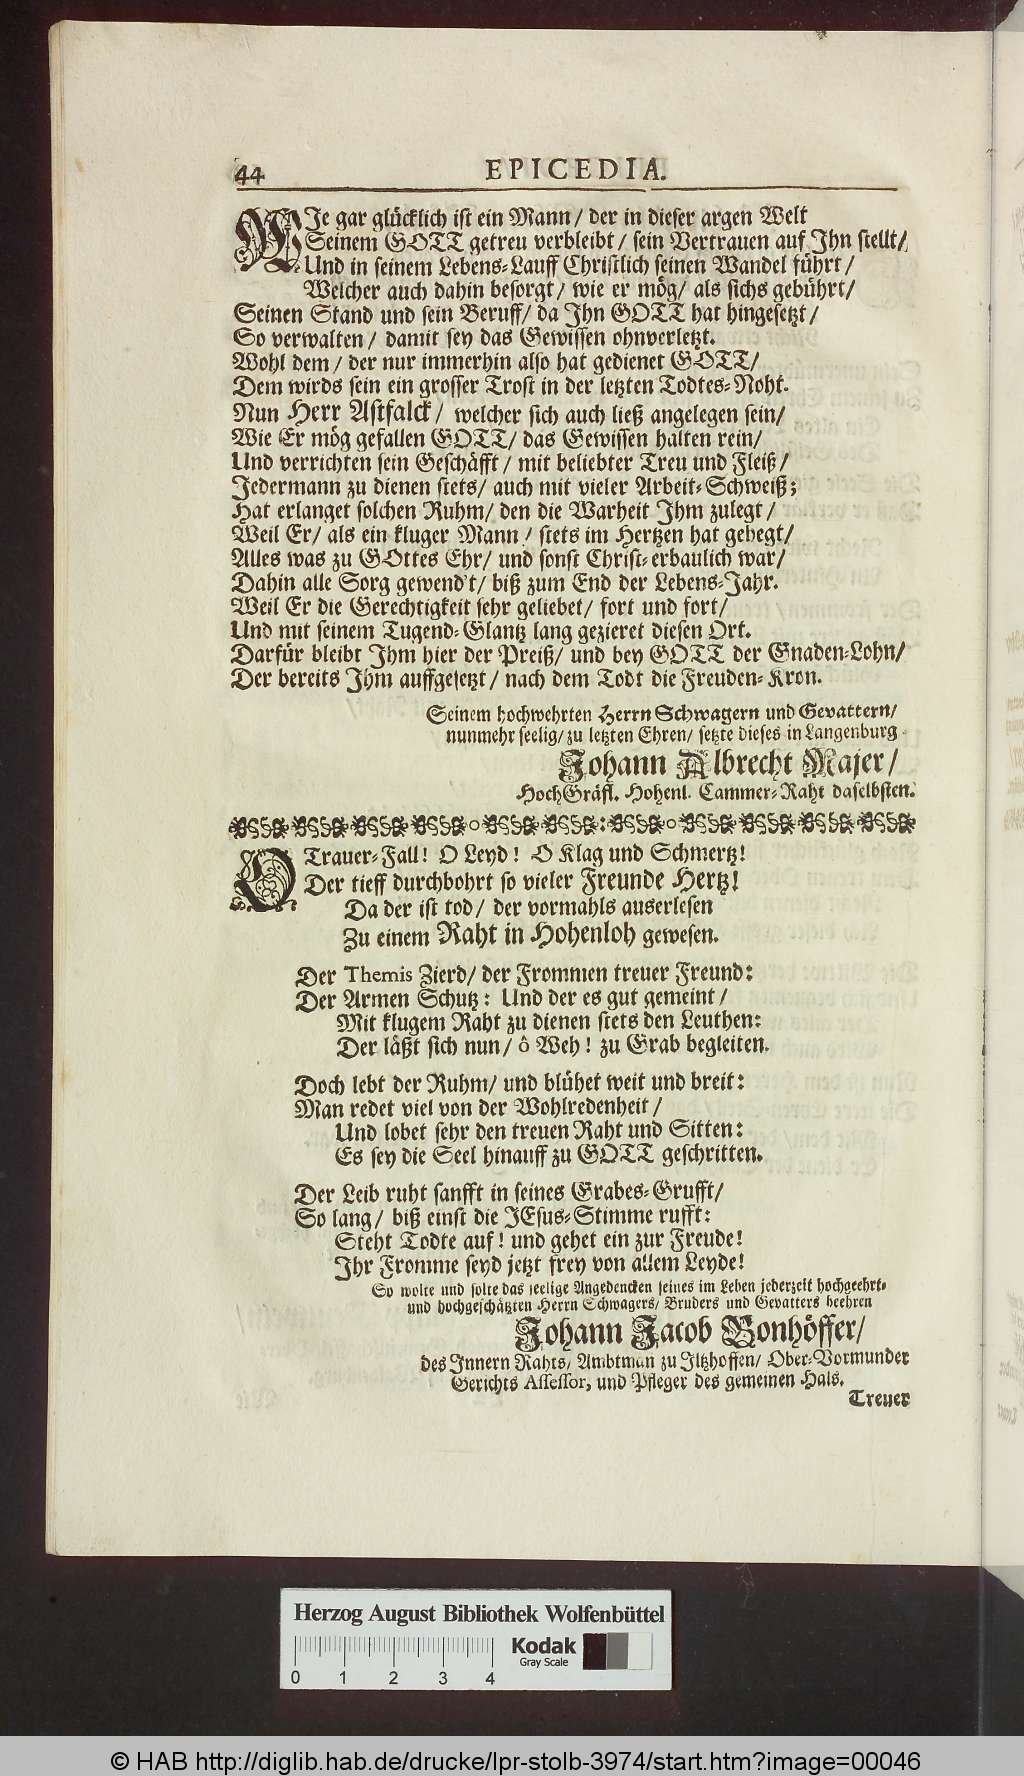 44 EPICEDIA.
WJe gar glücklich ist ein Mann/ der in dieser argen Welt
Seinem GOTT getreu verbleibt/ sein Vertrauen auf Jhn stellt/
Und in seinem Lebens-Lauff Christlich seinen Wandel führt/
Welcher auch dahin besorgt/ wie er mög/ als sichs gebührt/
Seinen Stand und sein Beruff/ da Jhn GOTT hat hingesetzt/
So verwalten/ damit sey das Gewissen ohnverletzt.
Wohl dem/ der nur immerhin also hat gedienet GOTT/
Dem wirds sein ein grosser Trost in der letzten Todtes-Noht.
Nun Herr Astfalck/ welcher sich auch ließ angelegen sein/
Wie Er mög gefallen GOTT/ das Gewissen halten rein/
Und verrichten sein Geschäfft/ mit beliebter Treu und Fleiß/
Jedermann zu dienen stets/ auch mit vieler Arbeit-Schweiß;
Hat erlanget solchen Ruhm/ den die Warheit Jhm zulegt/
Weil Er/ als ein kluger Mann/ stets im Hertzen hat gehegt/
Alles was zu GOttes Ehr/ und sonst Christ-erbaulich war/
Dahin alle Sorg gewend't/ biß zum End der Lebens-Jahr.
Weil Er die Gerechtigkeit sehr geliebet/ fort und fort/
Und mit seinem Tugend-Glantz lang gezieret diesen Ort.
Darfür bleibt Jhm hier der Preiß/ und bey GOTT der Gnaden-Lohn/
Der bereits Jhm auffgesetzt/ nach dem Todt die Freuden-Kron.
Seinem hochwehrten Herrn Schwagern und Gevattern/
nunmehr seelig/ zu letzten Ehren/ setzte dieses in Langenburg
Johann Albrecht Majer/
HochGräfl. Hohenl. Cammer-Raht daselbsten.
O Trauer-Fall! O Leyd! O Klag und Schmertz!
Der tieff durchbohrt so vieler Freunde Hertz!
Da der ist tod/ der vormahls auserlesen
Zu einem Raht in Hohenloh gewesen.
Der Themis Zierd/ der Frommen treuer Freund:
Der Armen Schutz: Und der es gut gemeint/
Mit klugem Raht zu dienen stets den Leuthen:
Der läßt sich nun/ ô Weh! zu Grab begleiten.
Doch lebt der Ruhm/ und blühet weit und breit:
Man redet viel von der Wohlredenheit/
Und lobet sehr den treuen Raht und Sitten:
Es sey die Seel hinauff zu GOTT geschritten.
Der Leib ruht sanfft in seines Grabes-Grufft/
So lang/ biß einst die JEsus-Stimme rufft:
Steht Todte auf! und gehet ein zur Freude!
Ihr Fromme seyd jetzt frey von allem Leyde!
So wolte und solte das seelige Angedencken seines im Leben jederzeit hochgeehrt-
und hochgeschätzten Herrn Schwagers/ Bruders und Gevatters beehren
Johann Jacob Bonhöffer/
des Innern Rahts/ Ambtman zu Jltzhoffen/ Ober-Vormunder
Gerichts Assessor, und Pfleger des gemeinen Hals.
Treuer
Herzog August Bibliothek Wolfenbüttel
Kodak
Gray Scale
0 1 2 3 4
© HAB http://diglib.hab.de/drucke/lpr-stolb-3974/start.htm?image=00046